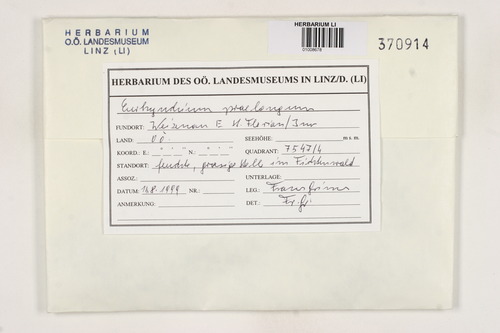 HERBARIUM
O.Ö. LANDESMUSEUM
LINZ (LI)
HERBARIUM LI
370914
HERBARIUM DES OÖ. LANDESMUSEUMS IN LINZ/D. (LI)
Eurhynchium praelongum
FUNDORT: E St. Florian/Inn
LAND: OÖ. SEEHÖHE: m s. m.
KOORD.: E N.: QUADRANT: 7547/4
STANDORT: feuchte, grasige Stelle im Fichtenwald
ASSOZ.: UNTERLAGE:
DATUM: 14.8.1999 NR.: LEG.: Franz Grims
ANMERKUNG: DET.: Fr. Gr.